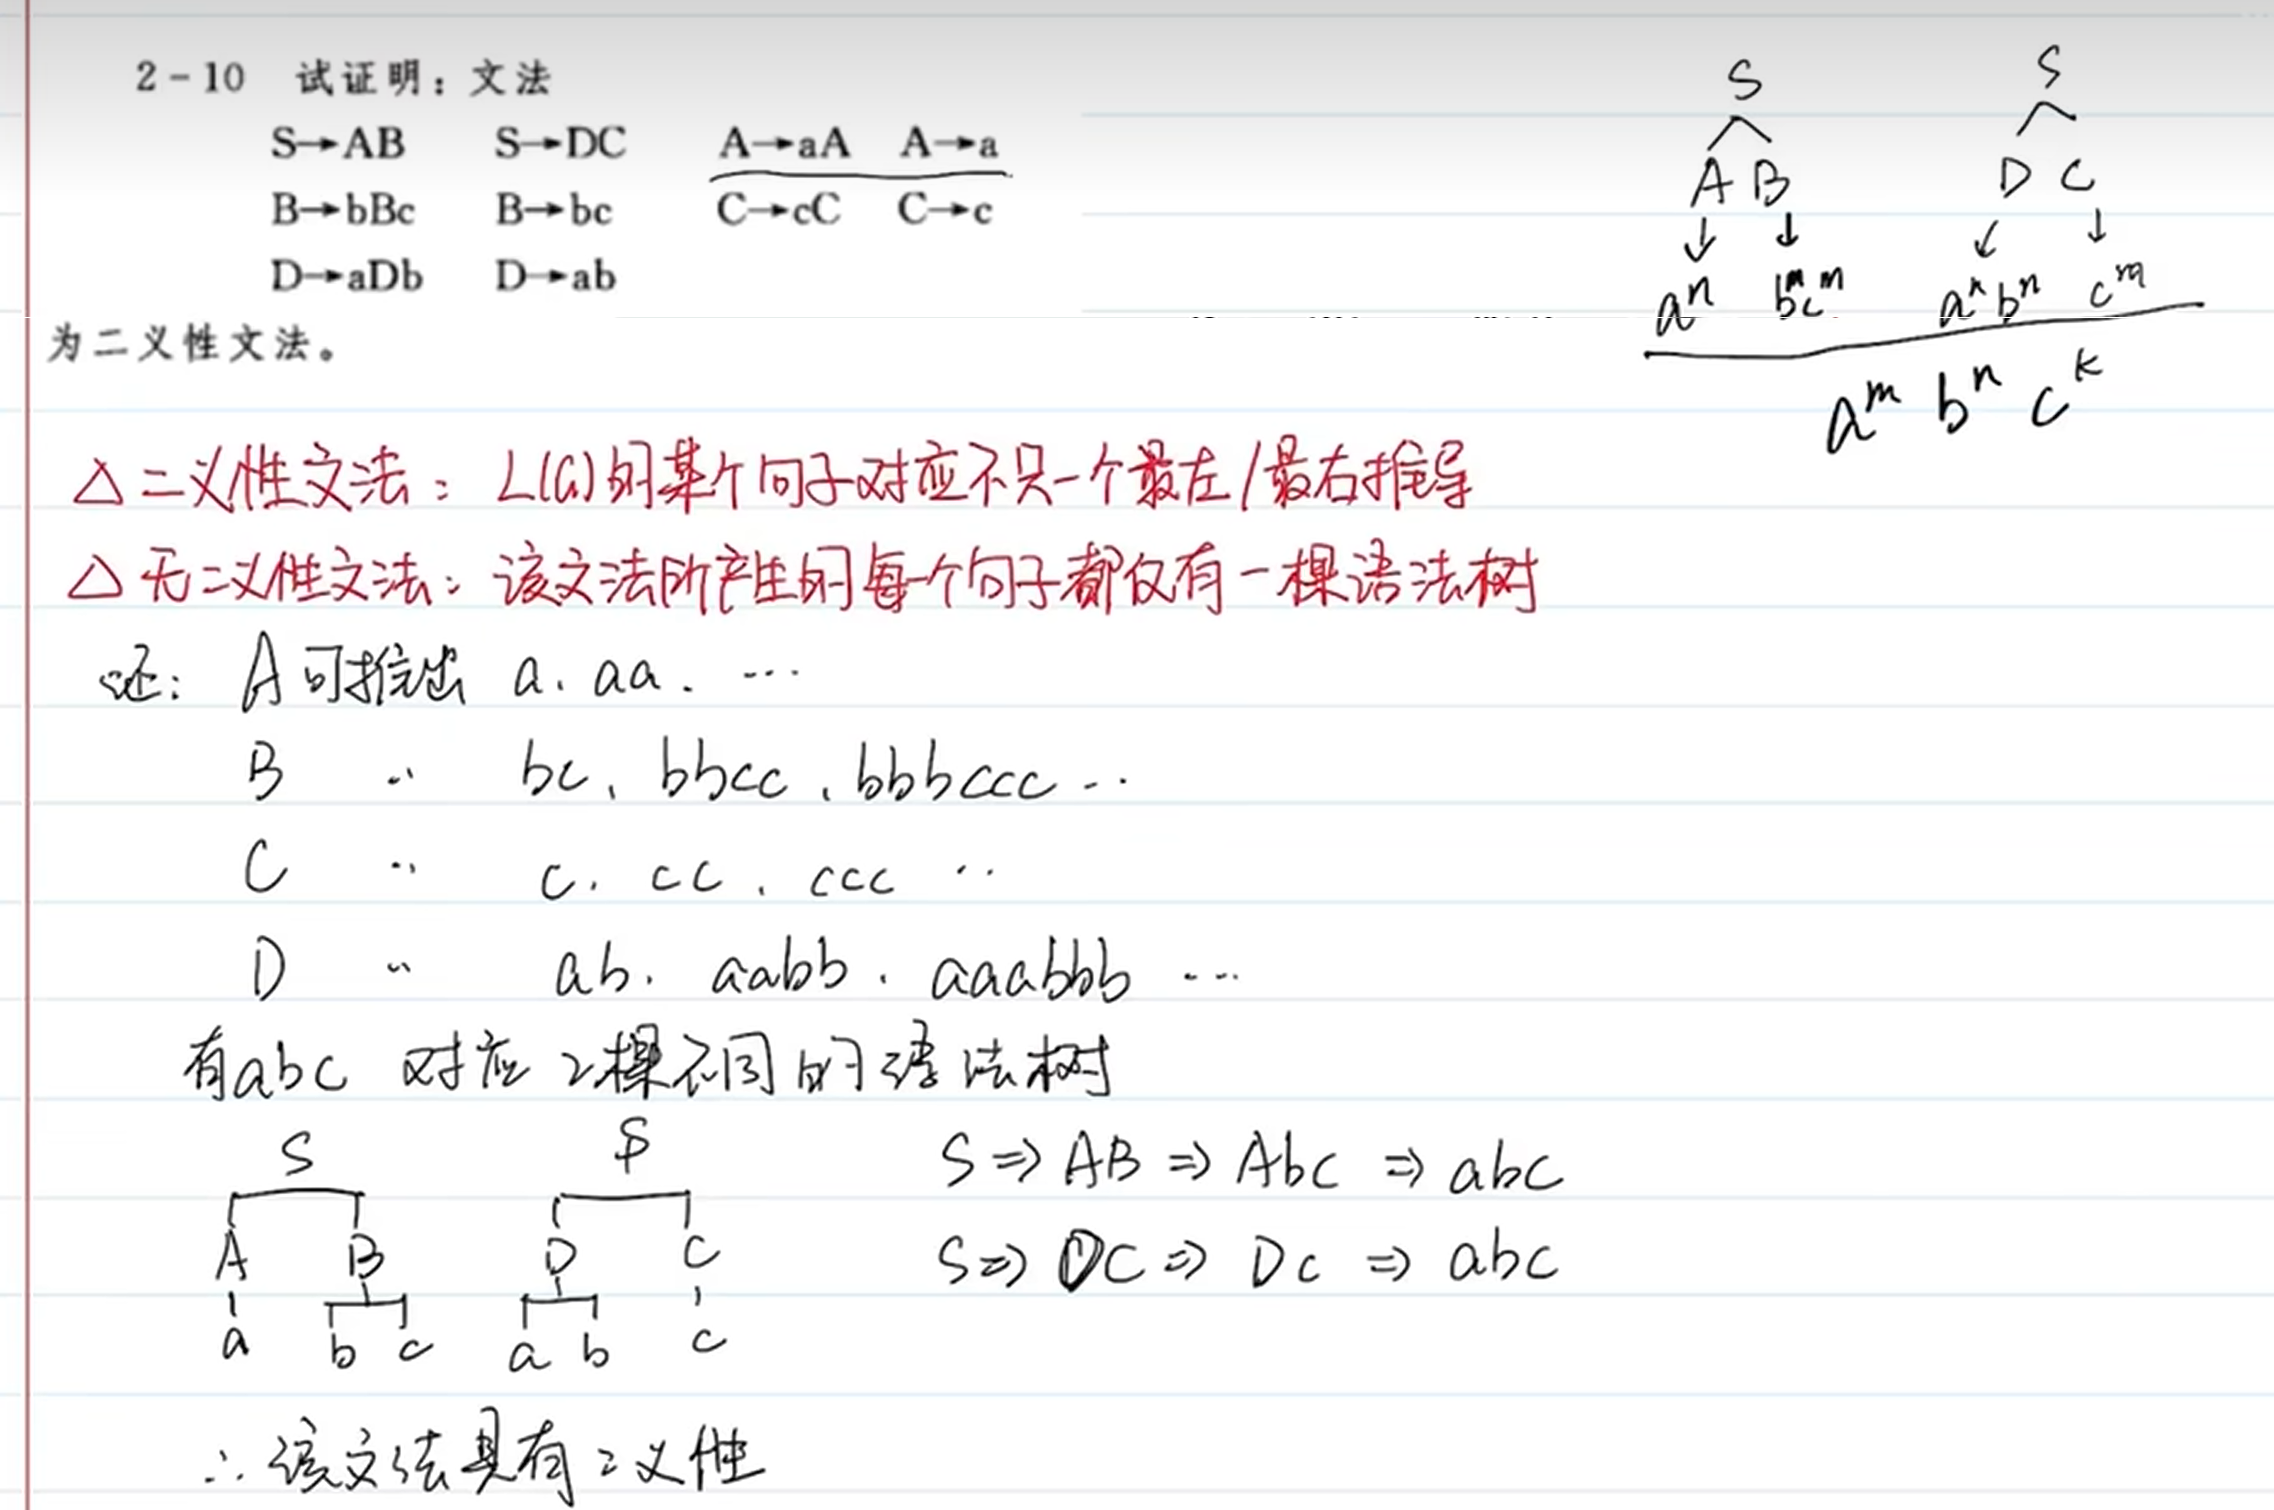 2-10 试证明：文法
S→AB S→DC A→aA A→a
B→bBc B→bc C→cC C→c
D→aDb D→ab
为二义性文法。
S S
A B D C
↓ ↓ ↙ ↓
aⁿ bᵐcᵐ aⁿbⁿ cᵐ
aᵐ bⁿ cᵏ
△ 二义性文法：L(G)的某个句子对应不只一个最左/最右推导
△ 无二义性文法：该文法所产生的每一个句子都仅有一棵语法树
证：A可推出 a、aa、…
B 〃 bc、bbcc、bbbccc…
C 〃 c、cc、ccc …
D 〃 ab、aabb、aaabbb …
有abc 对应2棵不同的语法树
S S
A B D C
a b c a b c
S⇒AB⇒Abc⇒abc
S⇒DC⇒Dc⇒abc
∴该文法具有二义性